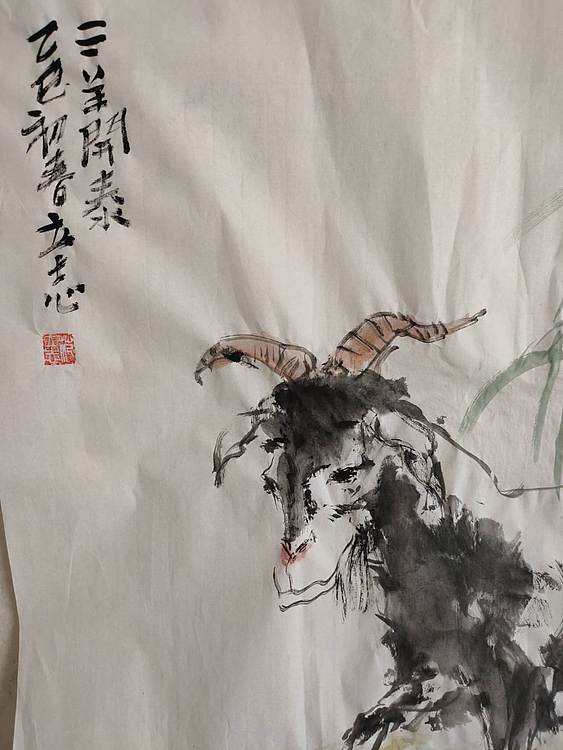 三羊開泰
乙巳初春立志